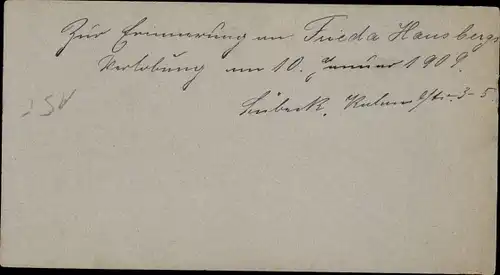 Zur Erinnerung an Frieda Hausbergs
Verlobung am 10. Januar 1909.
Lübeck, 3-5.